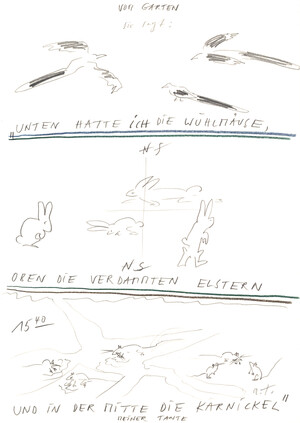 VOM GARTEN
„UNTEN HATTE ICH DIE WÜHLMÄUSE,
OBEN DIE VERDAMMTEN ELSTERN
15 40
UND IN DER MITTE DIE KARNICKEL“
MEINER TANTE